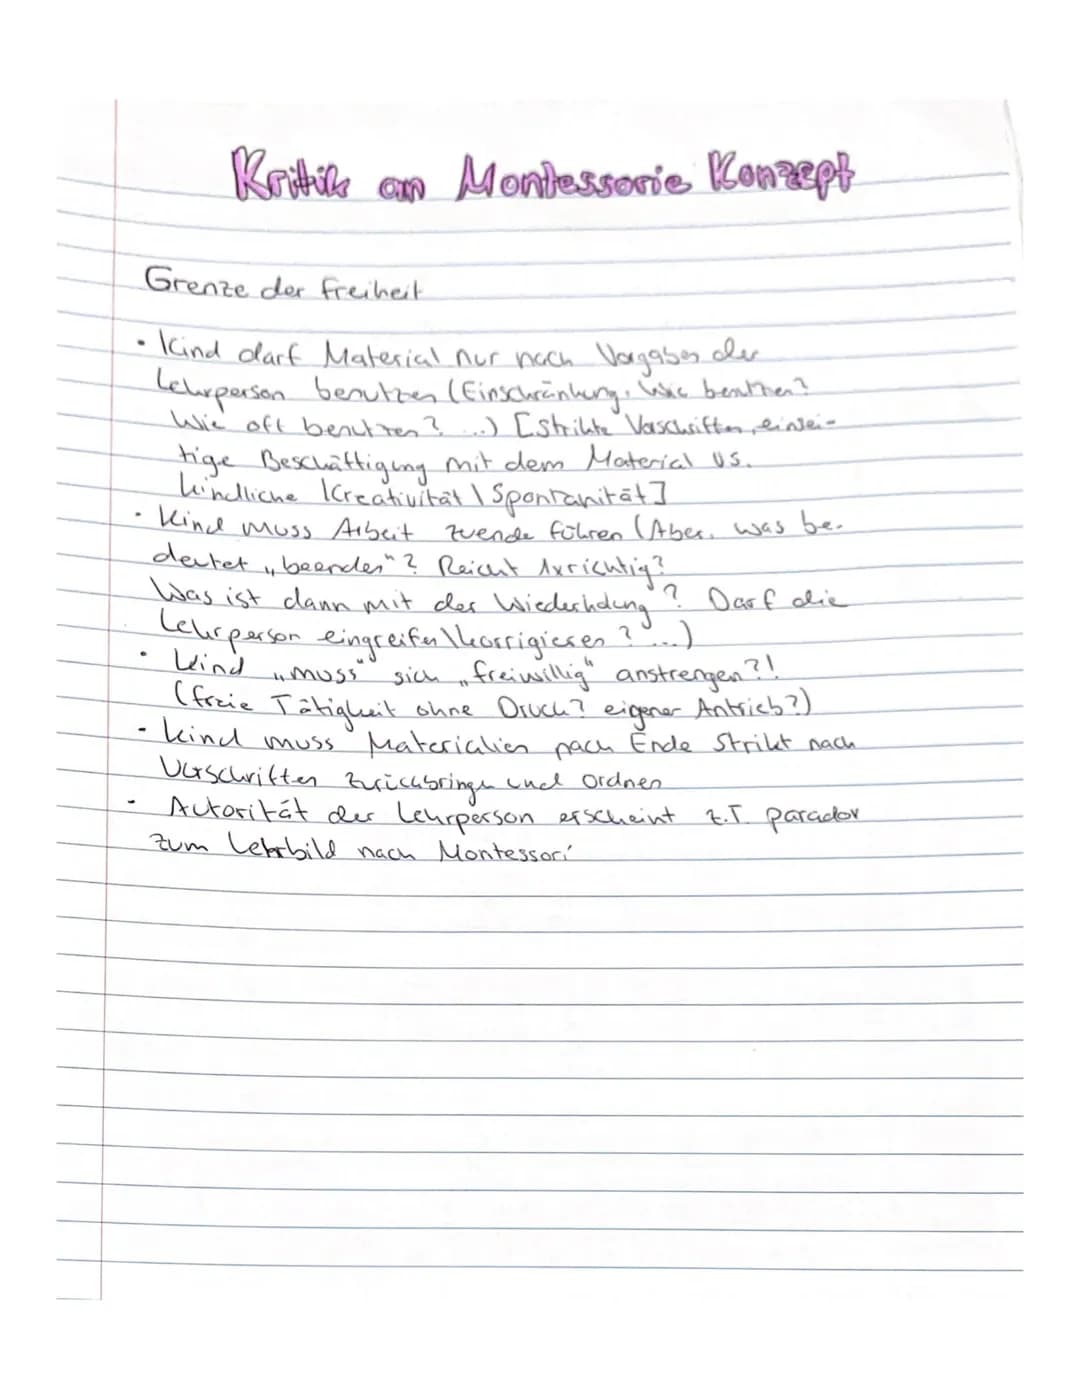 Kritik an Montessorie Konzept
Grenze der Freiheit
• Kind darf Material nur nach Vorgaben der
Lehrperson benutzen (Einschränkung. Wie benutzen?
Wie oft benutzen? ...) [strikte Vorschriften, einsei-
tige Beschäftigung mit dem Material vs.
kindliche Kreativität \ Spontanität]
• Kind muss Arbeit zuende führen (Aber. was be-
deutet „beenden"? Reicht 1x richtig?
Was ist dann mit der Wiederholung"? Darf die
Lehrperson eingreifen \ korrigieren? ...)
• Kind „muss" sich „freiwillig" anstrengen?!
(freie Tätigkeit ohne Druck? eigener Antrieb?)
- Kind muss Materialien nach Ende Strikt nach
Vorschriften zurückbringen und ordnen
- Autorität der Lehrperson erscheint z.T. paradox
zum Lehrbild nach Montessori